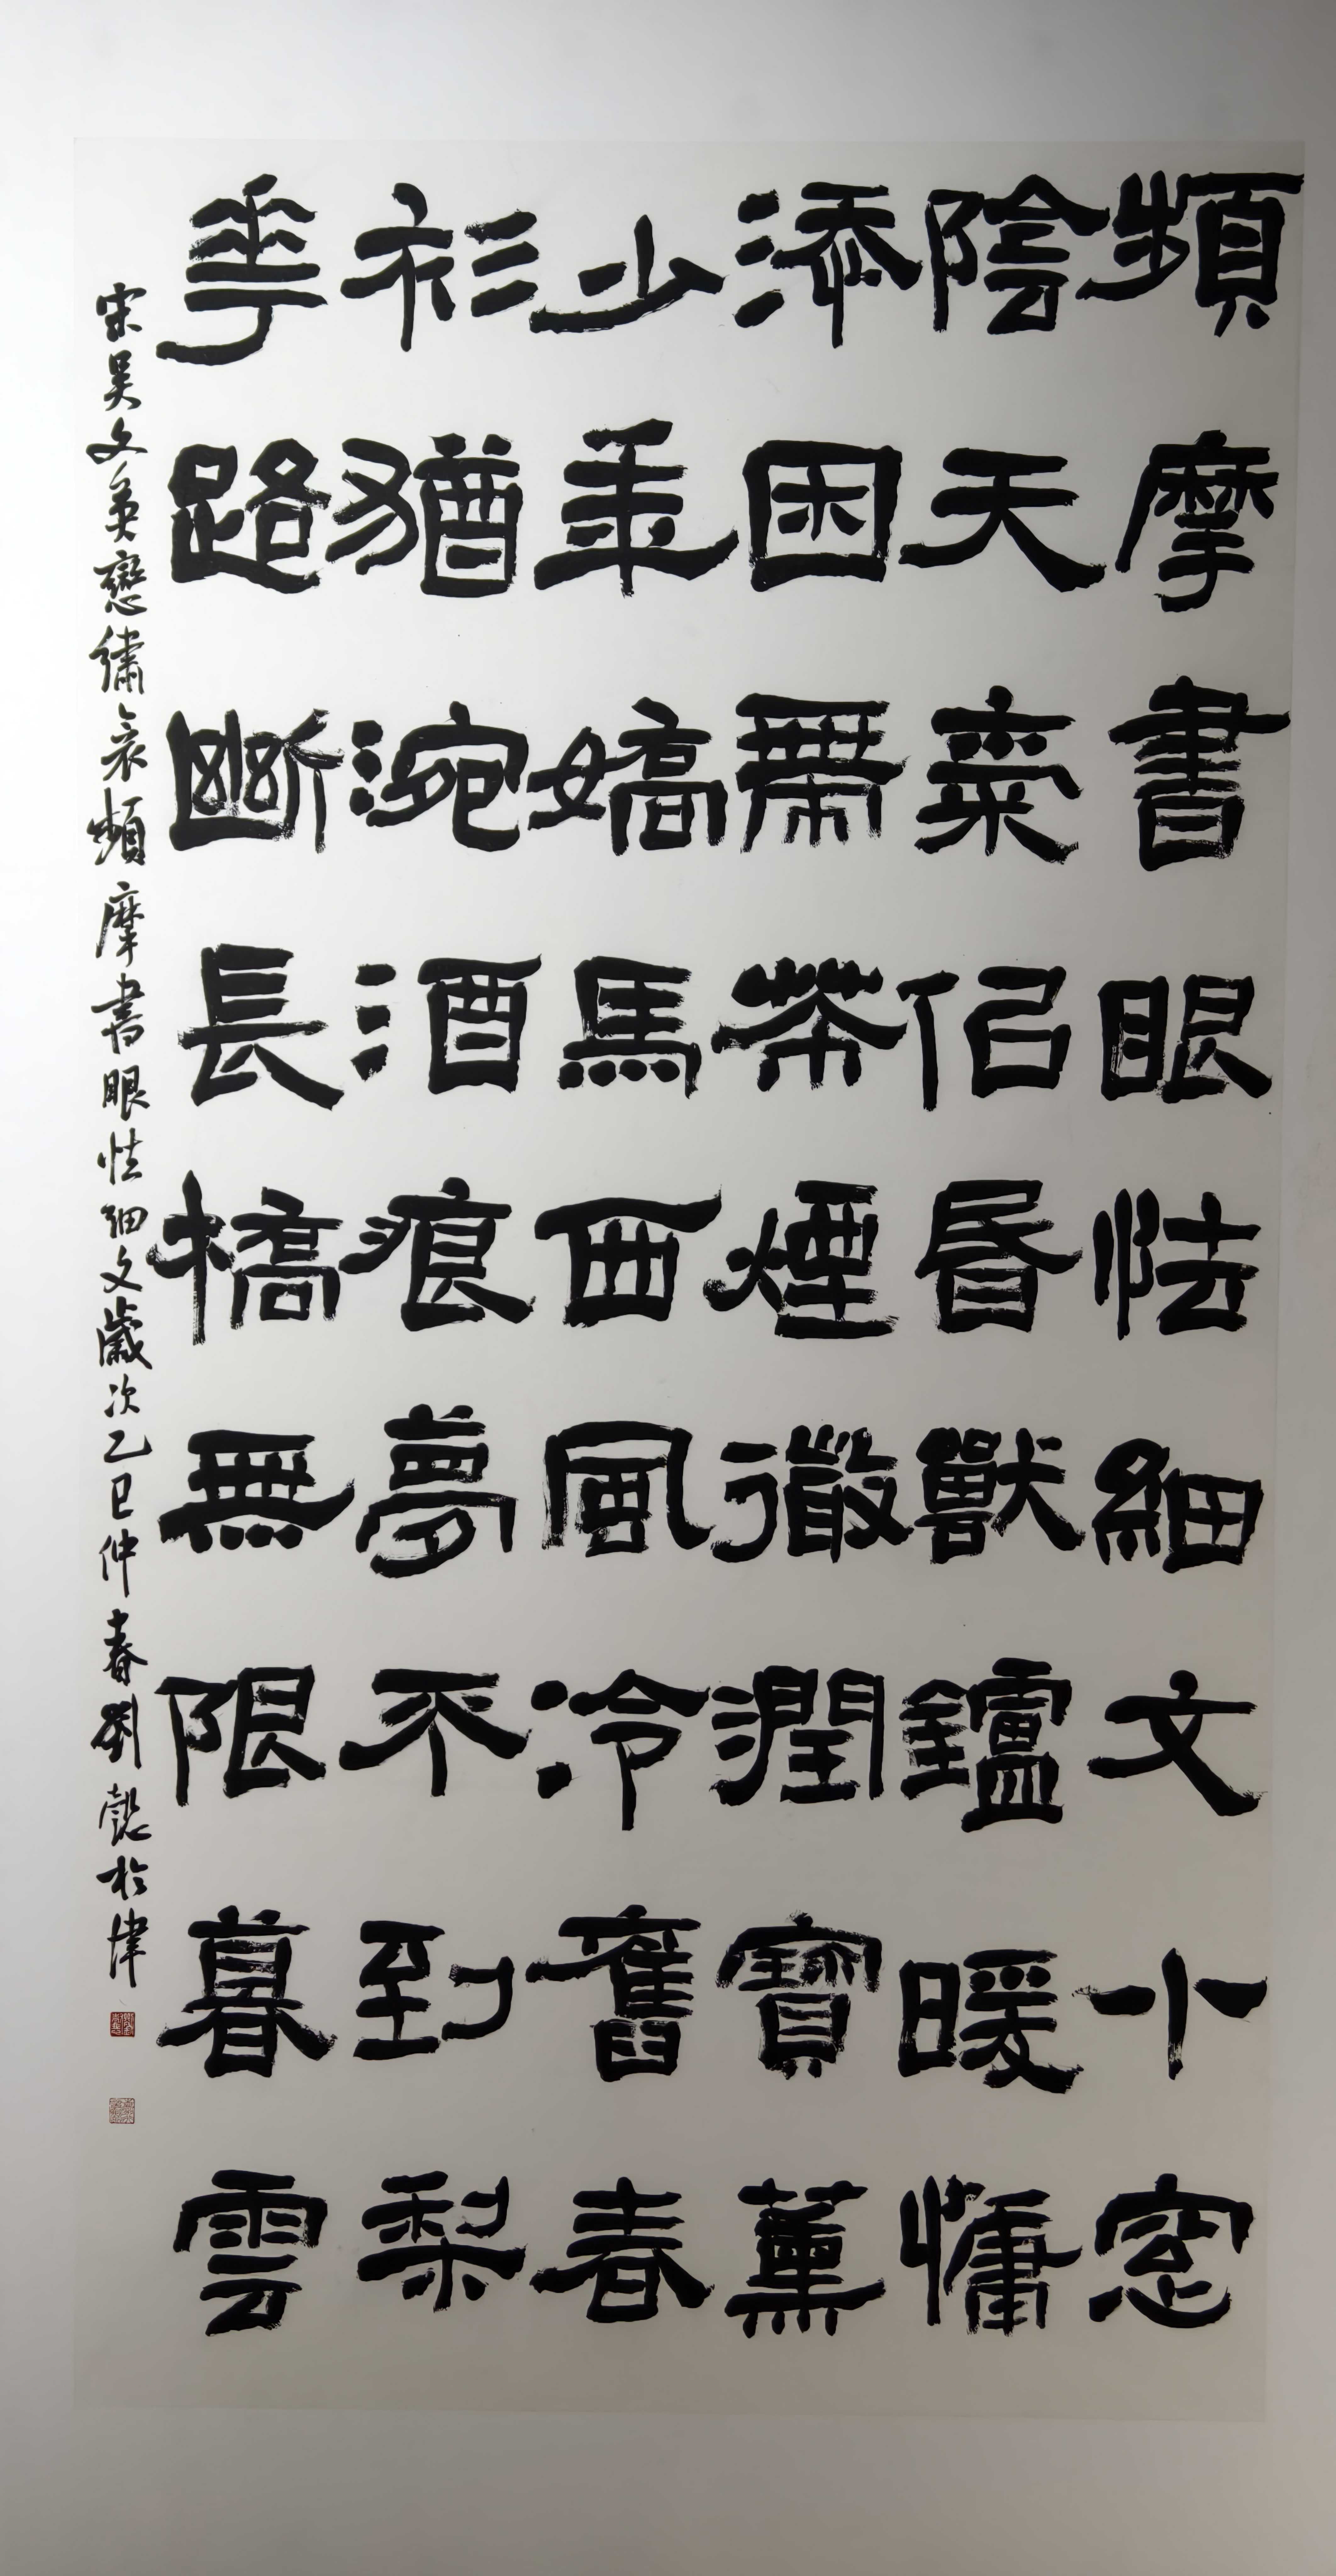 頻摩書眼怯細文小窓
陰天氣佀昏獸鑪暖慵
添困帶茶煙微潤寶薰
少年嬌馬西風冷舊春
衫猶涴酒痕夢不到梨
華路斷長橋無限暮雲
宋吳文英戀繡衾頻摩書眼怯細文歲次乙巳仲春劉懿於津